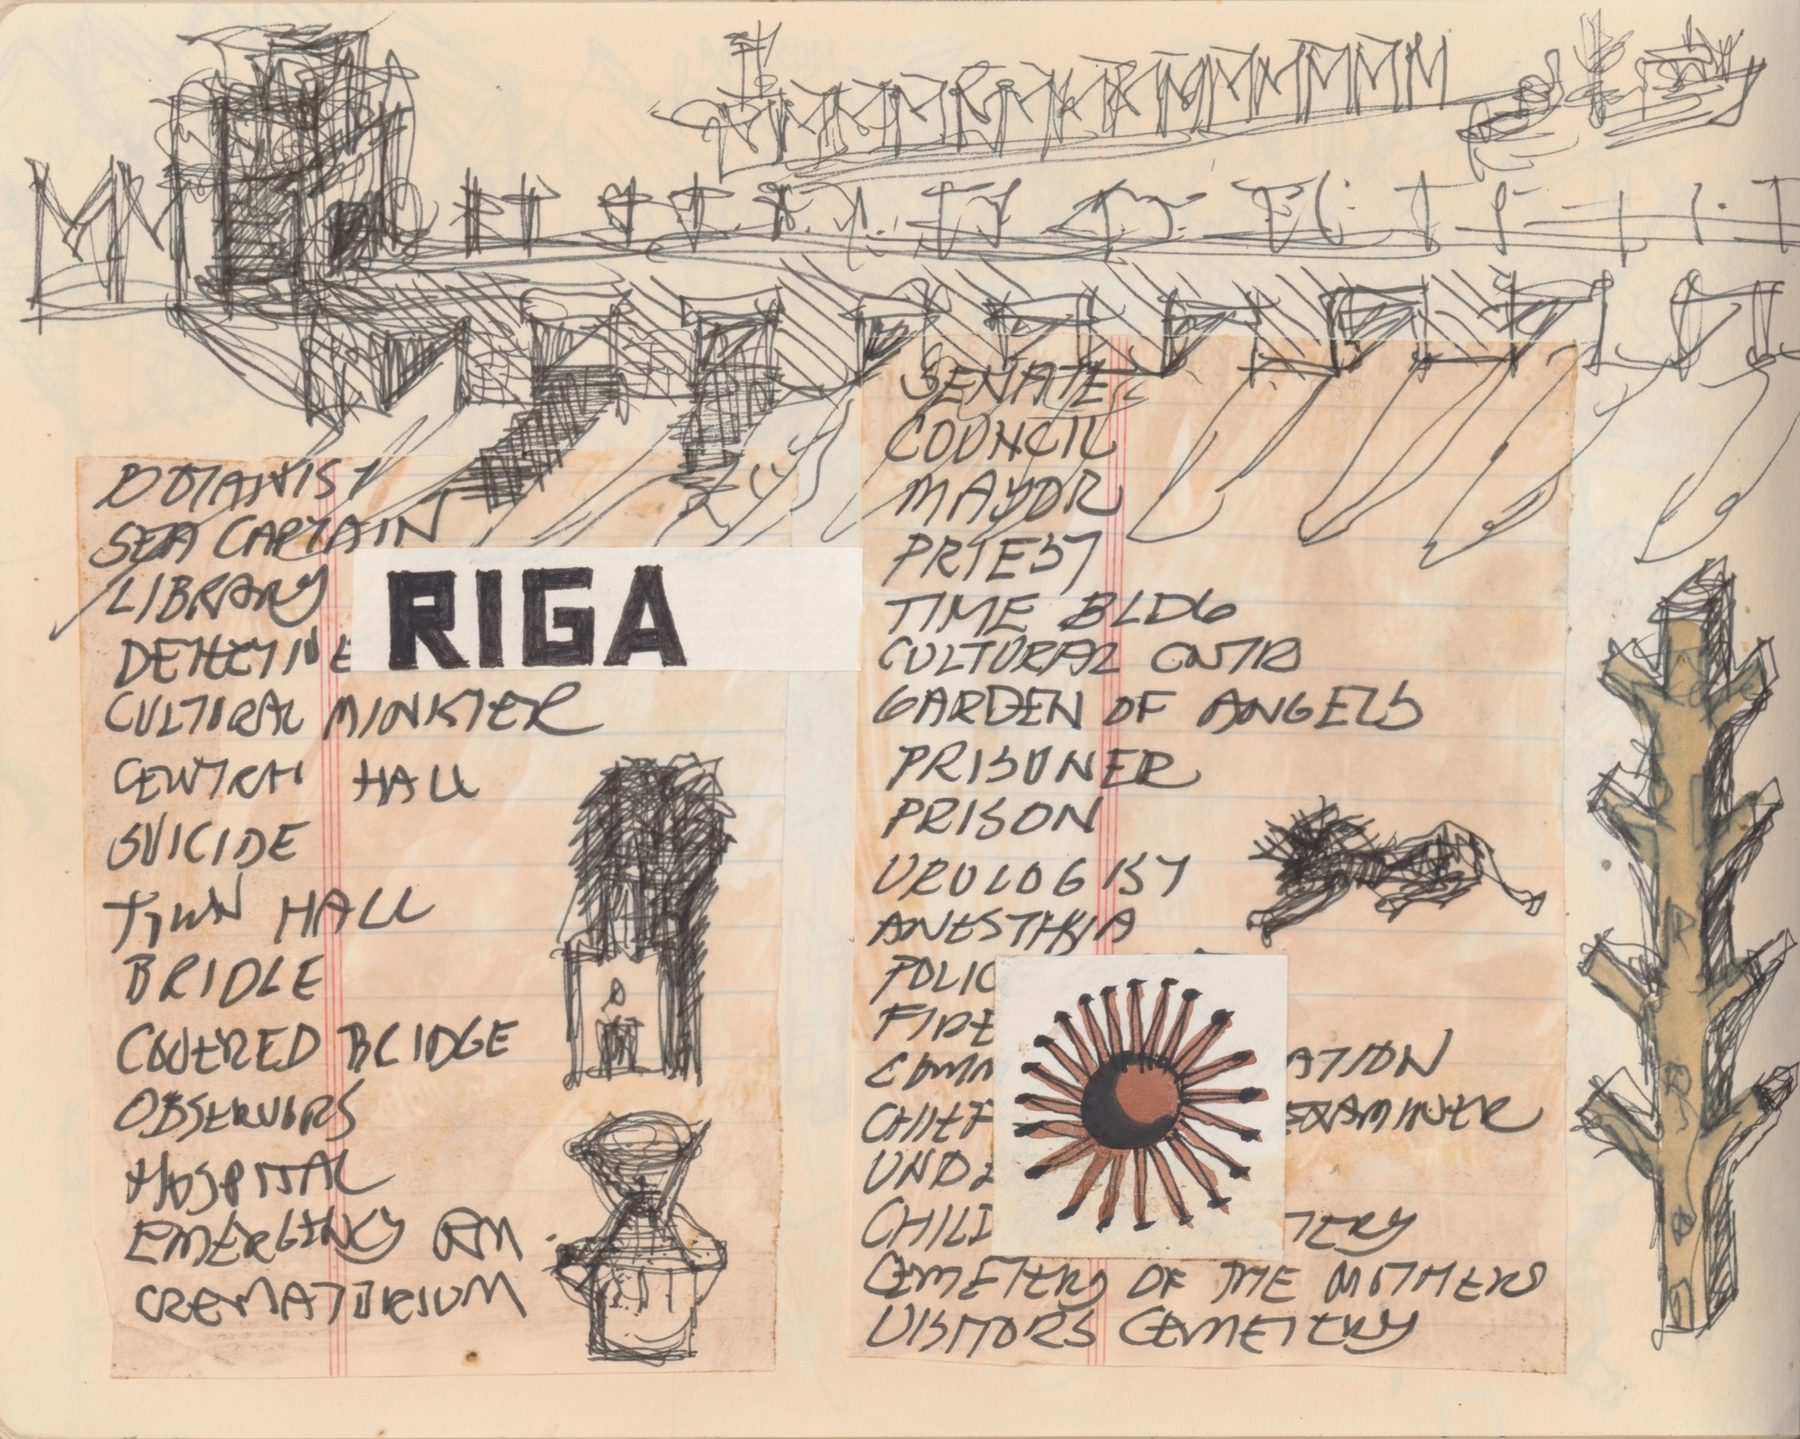 BOTANIST
SEA CAPTAIN
LIBRARY
DETECTIVE
RIGA
CULTURAL MINISTER
CENTRAL HALL
SUICIDE
TOWN HALL
BRIDLE
COVERED BRIDGE
OBSERVORS
HOSPITAL
EMERGENCY RM
CREMATORIUM
SENATE
COUNCIL
MAYOR
PRIEST
TIME BLDG
CULTURAL CNTR
GARDEN OF ANGELS
PRISONER
PRISON
UROLOGIST
ANESTHIA
POLIC
FIRE
COMM ATION
CHIEF EXAMINER
UND
CHIL TERY
CEMETERY OF THE MOTHERS
VISITORS CEMETERY